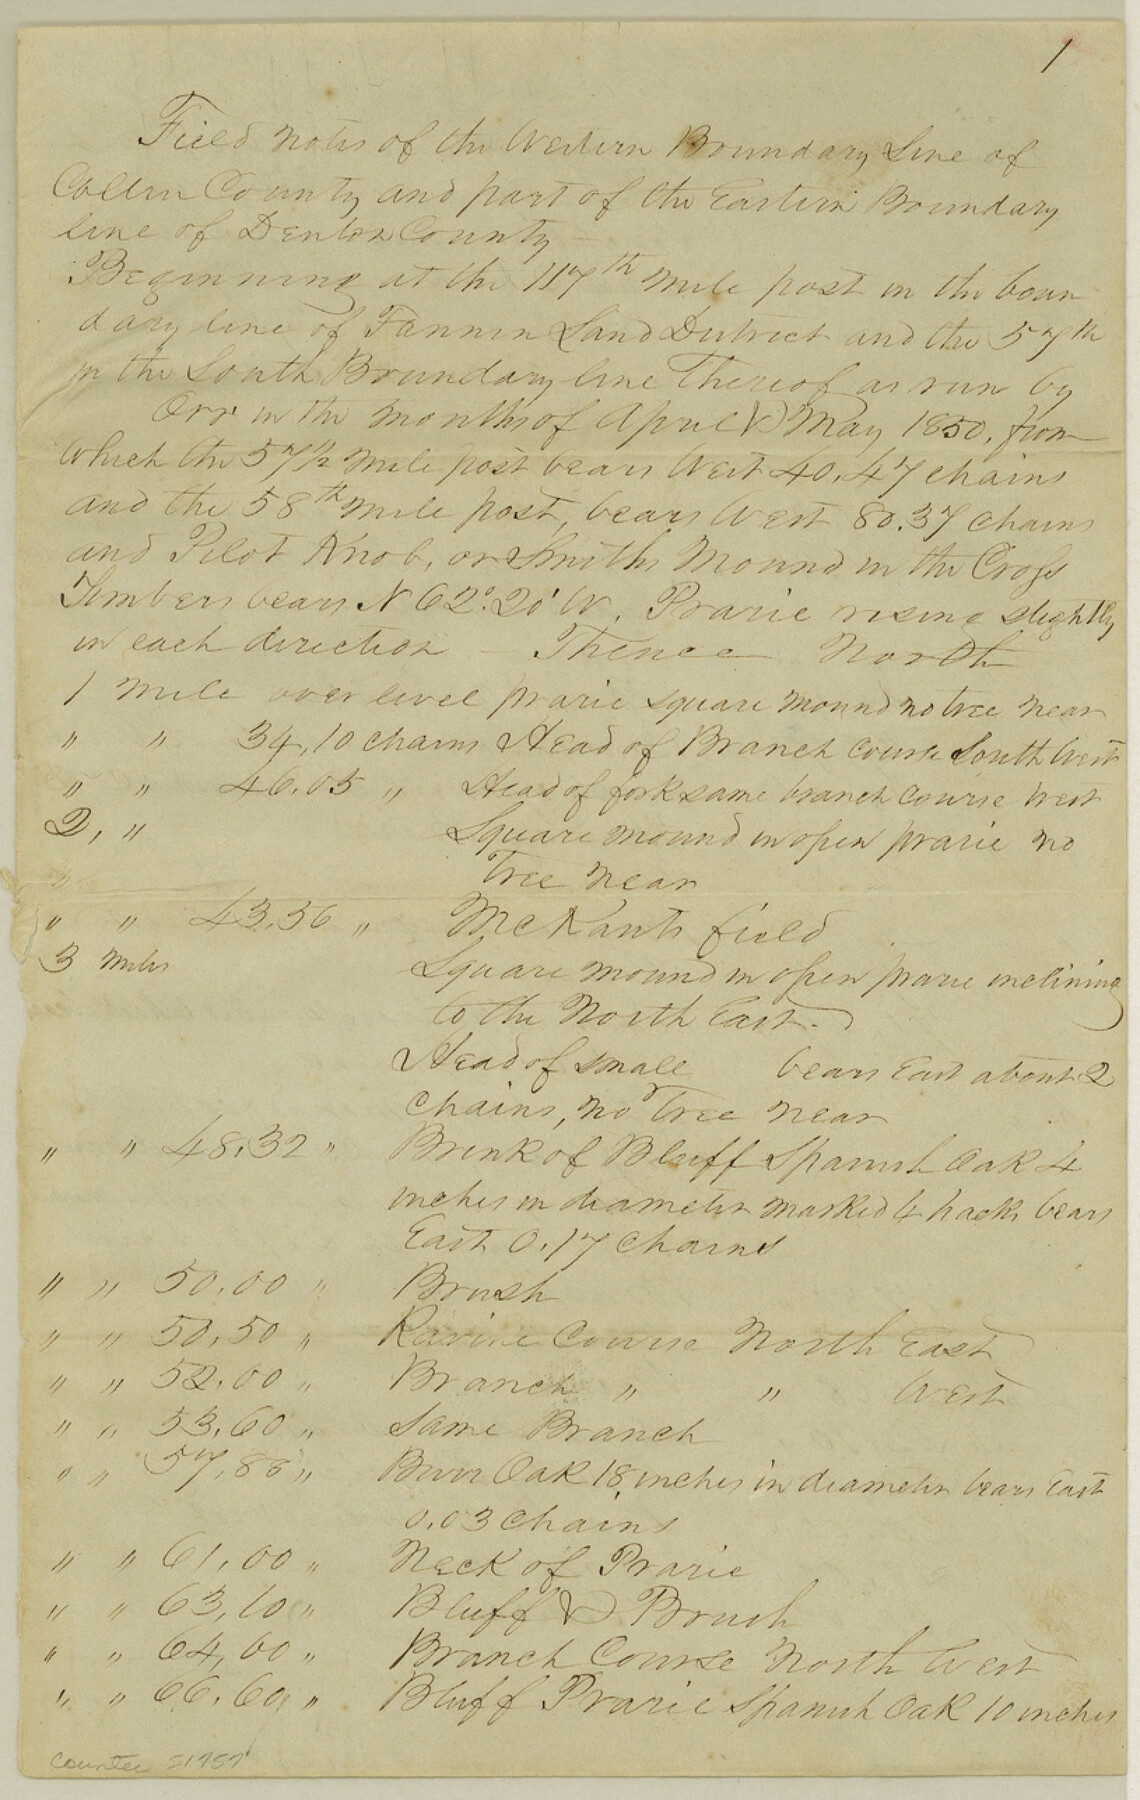 1
Field notes of the Western Boundary Line of
Collin County and part of the Eastern Boundary
line of Denton County –
Beginning at the 117th mile post in the boun
dary line of Fannin Land District and the 57th
in the South Boundary line Thereof as run by
Orr in the months of April & May 1850, from
which the 57½ mile post bears West 40,47 chains
and the 58th mile post, bears West 80.37 chains
and Pilot Knob, or Smiths Mound in the Cross
Timbers bears N 62°.20' W. Prarie rising slightly
in each direction – Thence North
1 Mile over level prarie square mound no tree near
" " 34,10 chains Head of Branch course South West
" " 46.05 " Head of fork same branch course West
2, " Square mound in open prarie no
Tree near
" " 43.56 " McKants field
3 Miles Square mound in open prarie inclining
to the North East.
Head of small bears East about 2
chains, no Tree near
" " 48,32 " Brink of Bluff Spanish Oak 4
inches in diameter marked 4 hacks bears
East 0.17 chains
" " 50.00 " Brush
" " 50,50 " Ravine Course North East
" " 52.00 " Branch " " West
" " 53,60 " Same Branch
" " 57,88 " Burr Oak 18 inches in diameter bears East
0.03 chains
" " 61,00 " Neck of Prarie
" " 63,10 " Bluff & Brush
" " 64,00 " Branch Course North West
" " 66,60 " Bluff Prarie Spanish Oak 10 inches
counter 51757